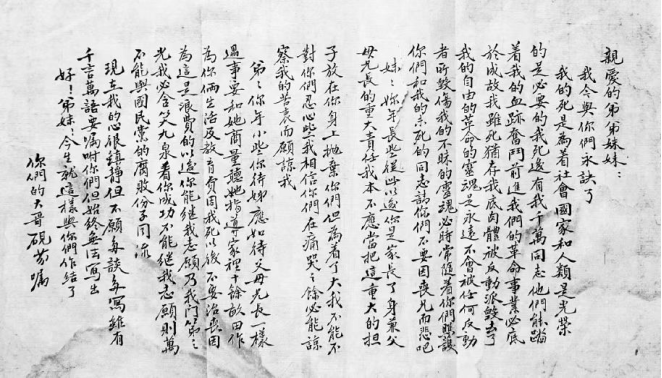 親愛的弟弟妹妹：
我今與你們永訣了
我的死是為着社會國家和人類是光榮
的是必要的我死後有我千萬同志他們能踏
着我的血跡奮鬥前進我們的革命事業必底
於成故我雖死猶存我底肉體被反動派毀去了
我的自由的革命的靈魂是永遠不會被任何反動
者所毀傷我的不昧的靈魂必時常隨着你們照護
你們和我的未死的同志請你們不要因喪兄而悲吧
妹：你年長些從此以後你是家長了身兼父
母兄長的重大責任我本不應當把這重大的担
子放在你身上拋棄你們但為着了大我不能不
對你們忍心些我相信你們在痛哭之餘必能諒
察我的苦衷而願諒我
弟：你年小些你待姊應如待父母兄長一樣
遇事要和她商量聽她指導家裡十餘畝田作
為你倆生活及教育費因我死以後不要治喪因
為這是浪費的以後你能繼我志願乃我門第之
光我必含笑九泉看你成功不能繼我志願則萬
不能與國民黨的腐敗份子同流
現在我的心很鎮靜但不願多談多寫雖有
千言萬語要囑咐你們但始終無法寫出
好！弟妹：今生就這樣與你們作結了
你們的大哥硯芬囑